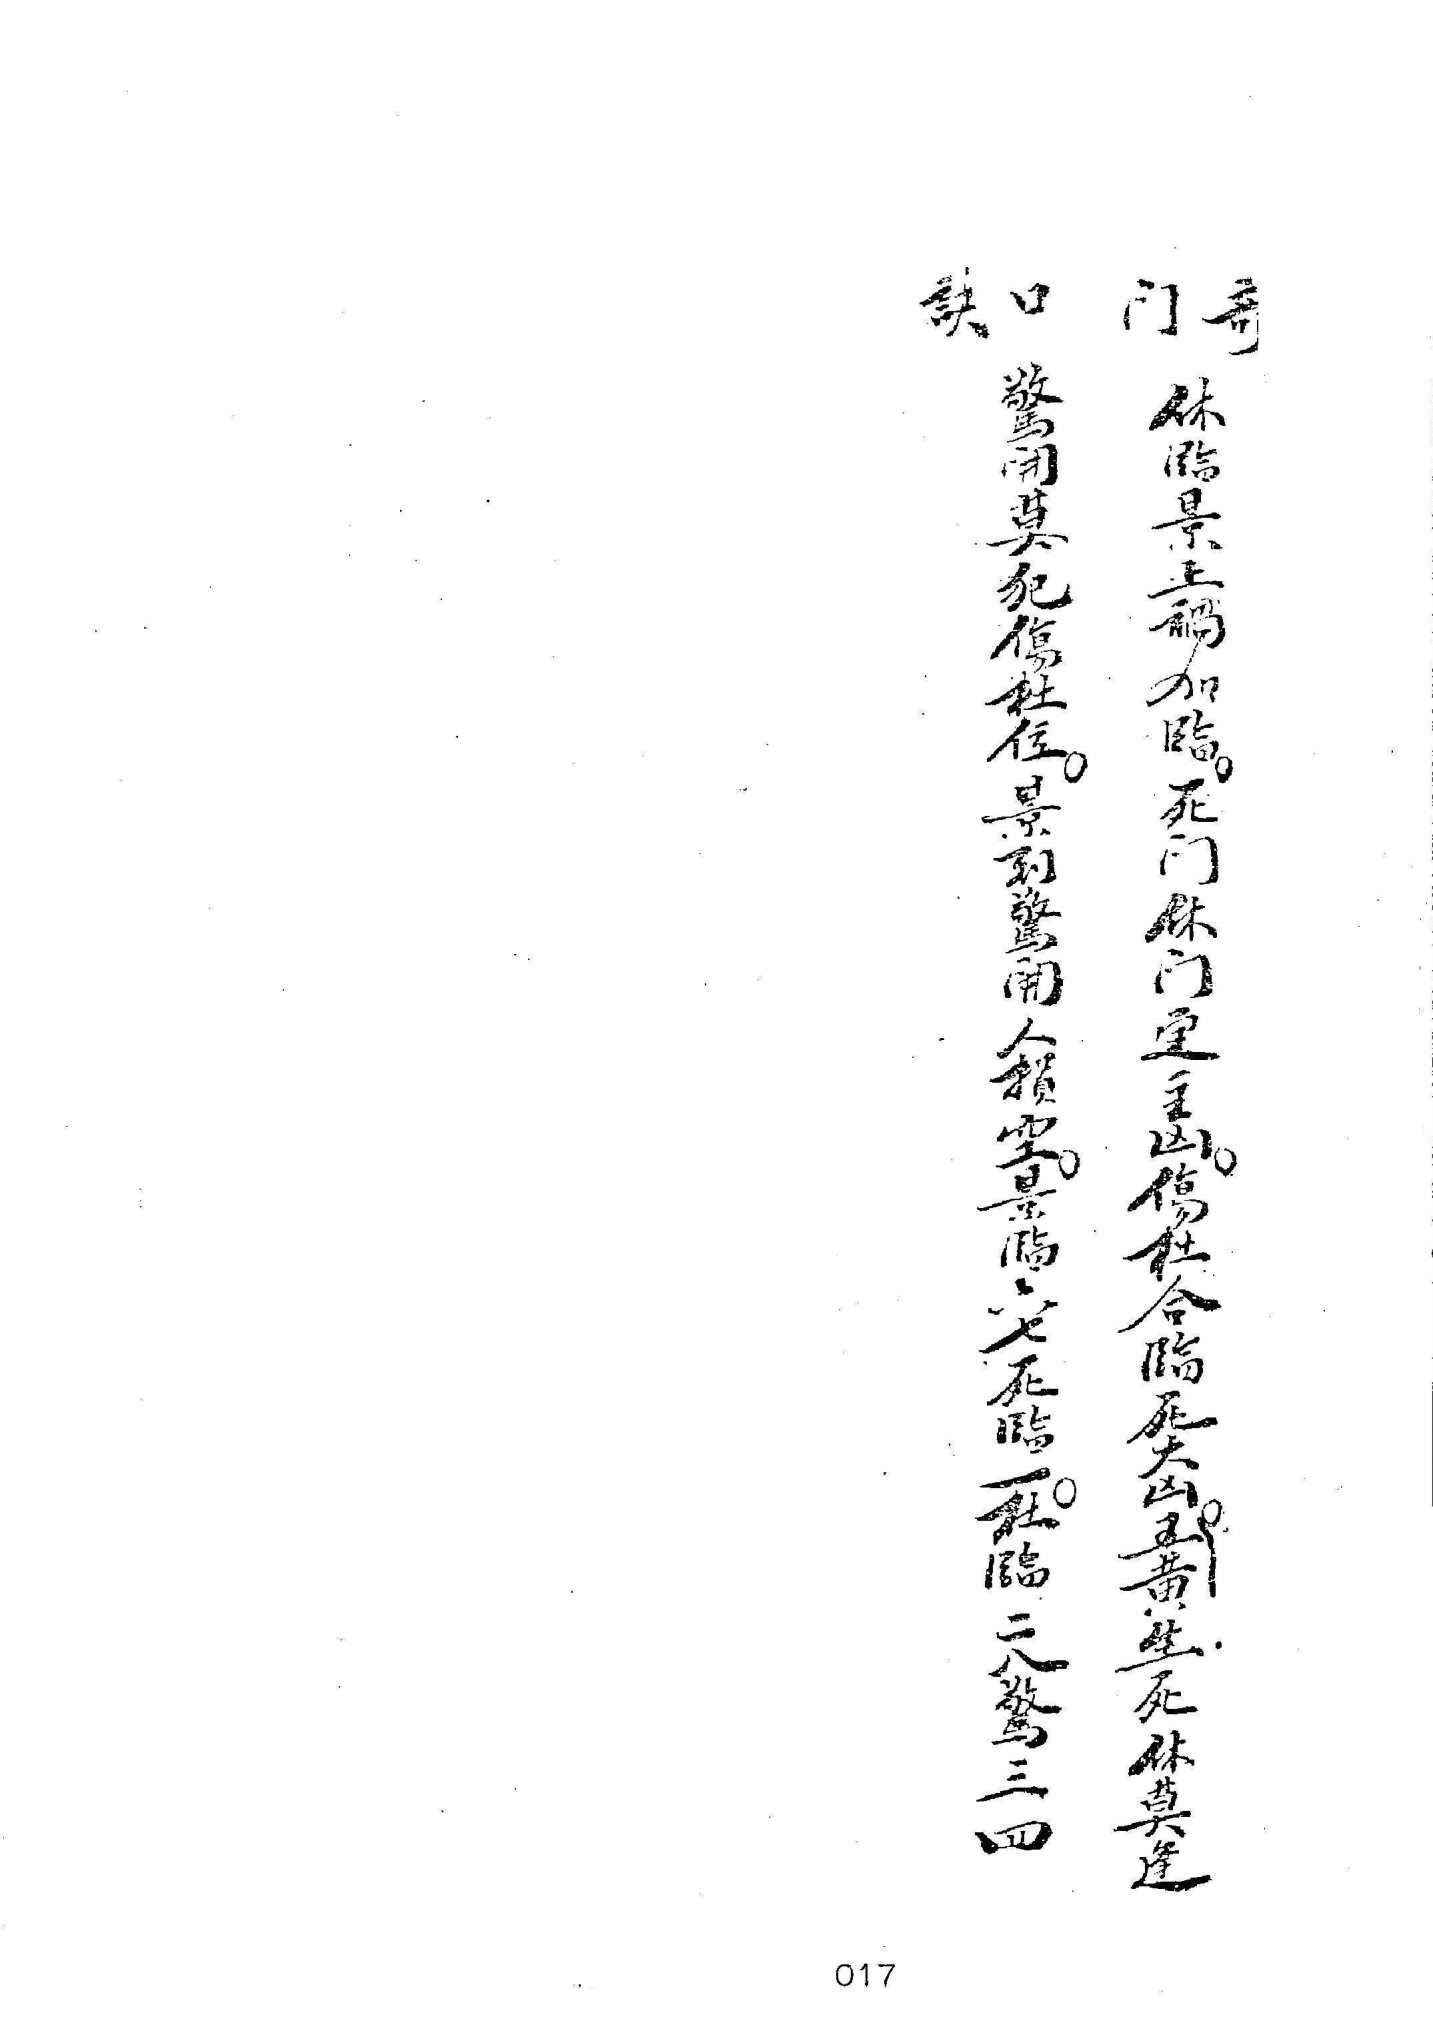 奇门口訣
休臨景上禍加臨。死门休门定主凶。傷杜合臨死大凶。五黄生死休莫逢
驚開莫犯傷杜位。景到驚開人損空。景臨六七死臨一。杜臨二八驚三四
017